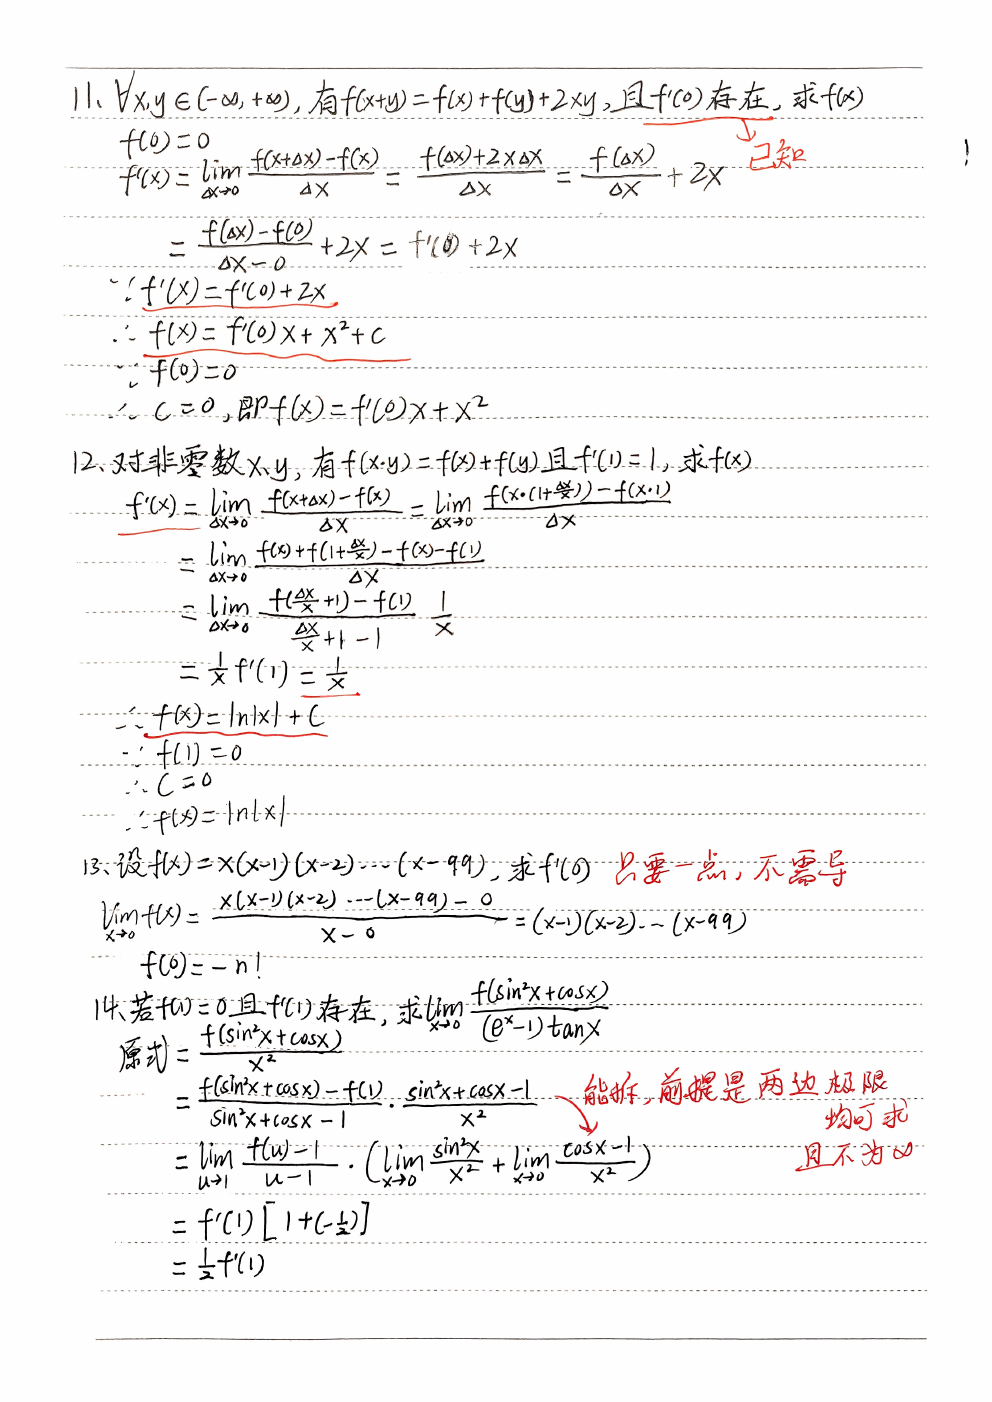 11、∀x,y∈(-∞,+∞),有f(x+y)=f(x)+f(y)+2xy,且f'(0)存在,求f(x)
f(0)=0
已知
f'(x)=lim_{Δx→0} \frac{f(x+Δx)-f(x)}{Δx} = \frac{f(Δx)+2xΔx}{Δx} = \frac{f(Δx)}{Δx} + 2x
= \frac{f(Δx)-f(0)}{Δx-0} + 2x = f'(0) + 2x
∵ f'(x)=f'(0)+2x
∴ f(x)=f'(0)x+x²+C
∵ f(0)=0
∴ C=0,即f(x)=f'(0)x+x²
12、对非零数x、y,有f(x·y)=f(x)+f(y)且f'(1)=1,求f(x)
f'(x)=lim_{Δx→0} \frac{f(x+Δx)-f(x)}{Δx} = lim_{Δx→0} \frac{f(x·(1+\frac{Δx}{x}))-f(x·1)}{Δx}
= lim_{Δx→0} \frac{f(x)+f(1+\frac{Δx}{x})-f(x)-f(1)}{Δx}
= lim_{Δx→0} \frac{f(\frac{Δx}{x}+1)-f(1)}{\frac{Δx}{x}+1-1} \frac{1}{x}
= \frac{1}{x} f'(1) = \frac{1}{x}
∴ f(x)=ln|x|+C
∵ f(1)=0
∴ C=0
∴ f(x)=ln|x|
13、设f(x)=x(x-1)(x-2)…(x-99),求f'(0) 只要一点,不需导
lim_{x→0} f(x)= \frac{x(x-1)(x-2)…(x-99)-0}{x-0} =(x-1)(x-2)…(x-99)
f(0)=-n!
14、若f(1)=0且f'(1)存在,求lim_{x→0} \frac{f(sin²x+cosx)}{(e^x-1)tanx}
原式= \frac{f(sin²x+cosx)}{x²}
= \frac{f(sin²x+cosx)-f(1)}{sin²x+cosx-1} · \frac{sin²x+cosx-1}{x²}
能拆,前提是两边极限
均可求
且不为∞
= lim_{u→1} \frac{f(u)-1}{u-1} · (lim_{x→0} \frac{sin²x}{x²} + lim_{x→0} \frac{cosx-1}{x²})
= f'(1)[1+(-\frac{1}{2})]
= \frac{1}{2}f'(1)